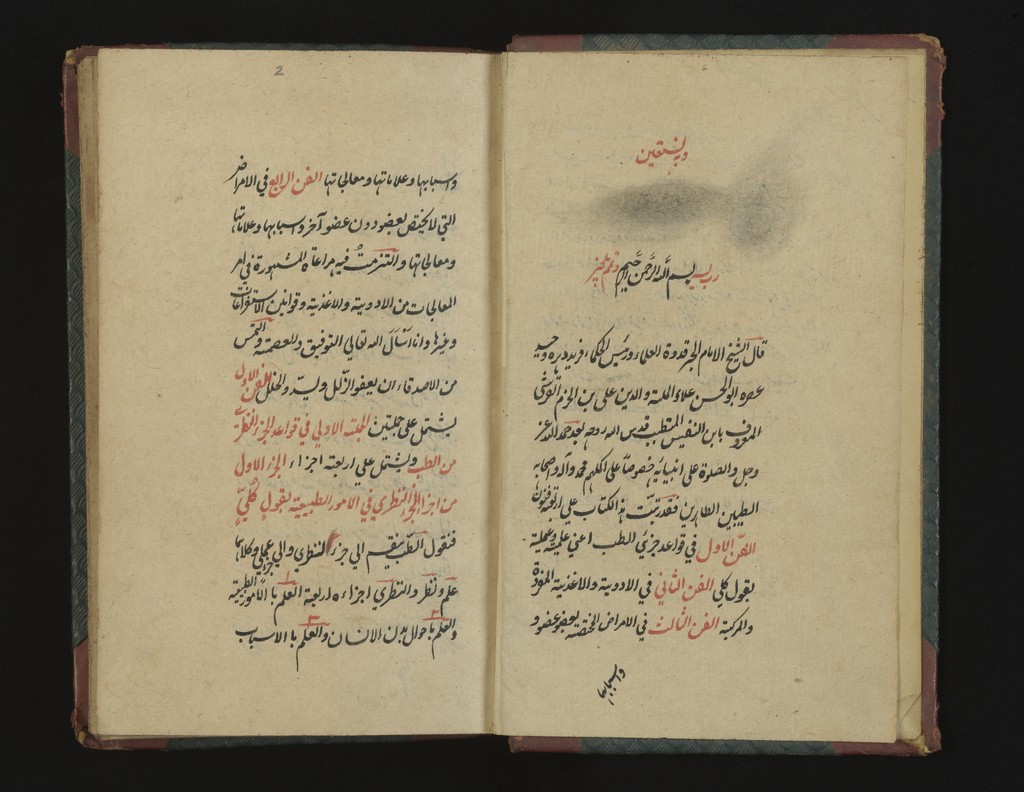 وبه نستعين
رب يسر بسم الله الرحمن الرحيم وتمم بالخير
قال الشيخ الامام الحبر قدوة العلماء ورئيس الحكماء فريد دهره وحيد
عصره ابو الحسن علاء الملة والدين علي بن الحزم القرشي
المعروف بابن النفيس المتطبب قدس الله روحه بعد حمد الله عز
وجل والصلوة على انبيائه خصوصاً على اكملهم محمد وآله واصحابه
الطيبين الطاهرين فقد رتبت هذا الكتاب علي اربعة فنون
الفن الاول في قواعد جزئي الطب اعني علميته وعملية
بقول كلي الفن الثاني في الادوية والاغذية المفردة
والمركبة الفن الثالث في الامراض المختصة بعضو عضو و
واسبابها
2
واسبابها وعلاماتها ومعالجاتها الفن الرابع في الامراض
التي لا يختص بعضو دون عضو آخر واسبابها وعلاماتها
ومعالجاتها والتزمت فيه مراعاة المشهورة في امر
المعالجات من الادوية والاغذية وقوانين الاستفراغات
وغيرها وانا اسأل الله تعالي التوفيق والعصمة والتمس
من الاصدقاء ان يعفو الزلل ويسد والخلل الفن الاول
يشتمل على جملتين الجملة الاولي في قواعد الجزء النظري
من الطب ويشتمل علي اربعة اجزاء الجزء الاول
من اجزاء الجزء النظري في الامور الطبيعية بقول كلي
فنقول الطب ينقسم الي جزء النظري والي جزء عملي وكلاهما
علم ونظر والنظري اجزاءه اربعة العلم با الامور الطبيعية
والعلم باحوال بدن الانسان والعلم با الاسباب